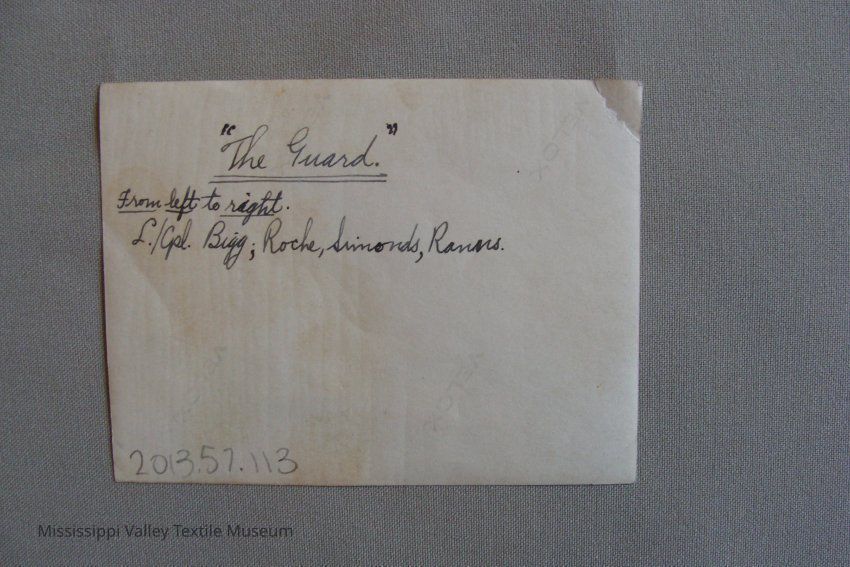 "The Guard."
From left to right.
L./Cpl. Bigg; Roche, Simonds,
2013.57.113
Mississippi Valley Textile Museum